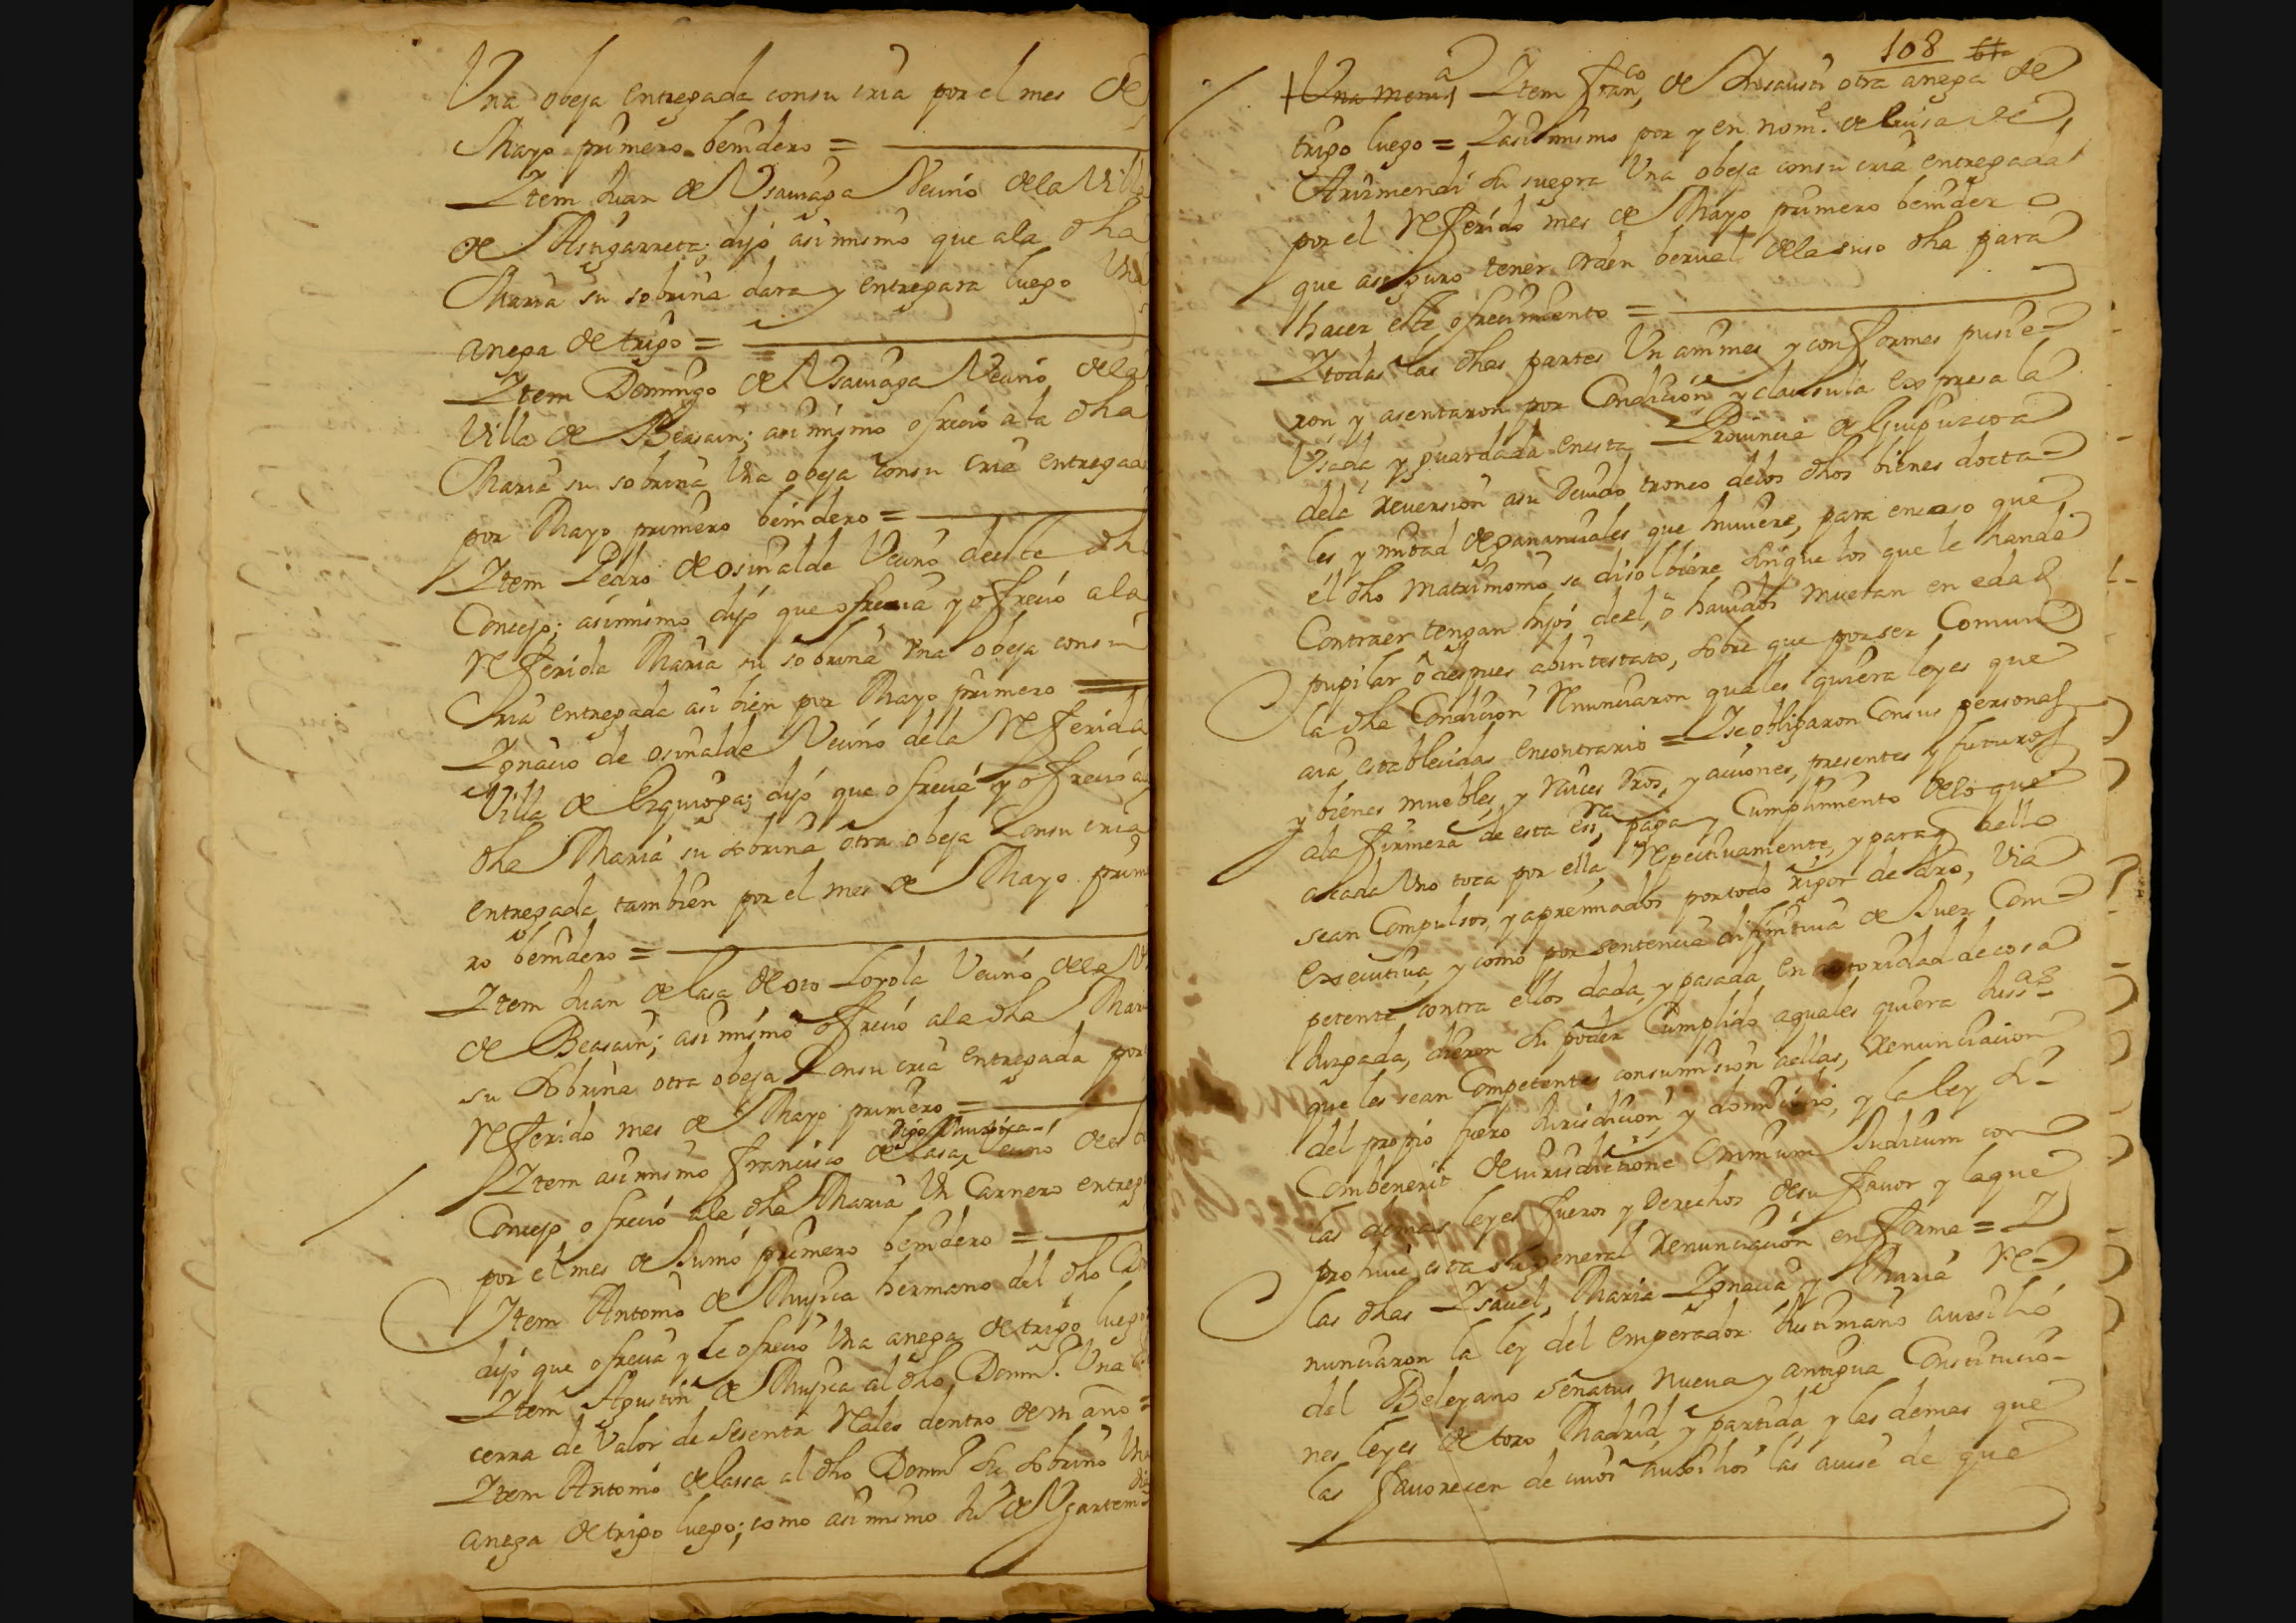 Una obeja entregada consu cria por el mes de
Mayo primero benidero =
Ytem Juan de Vsauiaga Vecino dela Villa
de Astigarreta; dijo asi mismo que ala dha
Maria su sobrina dara y entregara luego Una
anega de trigo =
Ytem Domingo de Vsauiaga Vecino dela
Villa de Beasain; asi mismo ofrecio a la dha
Maria su sobrina Una obeja consu cria entregada
por Mayo primero benidero =
Ytem Pedro de osinalde Vecino deste dho
Concejo; asimismo dijo que ofrecia y ofrecio ala
Referida Maria su sobrina Vna obeja consu
Cria entregada asi bien por Mayo primero =
Ygnacio de osinalde Vecino dela Referida
Villa de Ezquioga; dijo que ofrecia y ofrecio a
dha Maria su sobrina otra obeja consu cria
entregada tambien por el mes de Mayo prime
ro benidero =
Ytem Juan de lasa de oro Loyola Vecino dela V
de Beasain; asi mismo ofrecio ala dha Maria
su sobrina otra obeja Consu cria entregada por
Referido mes de Mayo primero =
digo Mugica
Ytem asi mismo francisco de lasa, Vecino dest
Concejo ofrecio ala dha Maria Un Carnero entreg
por el mes de Junio primero benidero =
Ytem Antonio de Mugica hermano del dho
dijo que ofrecia y le ofrecio Una anega de trigo luego
Ytem Agustin de Mugica al dho Domin.º Una
cerra de Valor de Sesenta Reales dentro de un año =
Ytem Antonio de lassa al dho Domin.º su sobrino Una
anega de trigo luego; como asi mismo Ju.º de Vgartem
108
Una mera Ytem fran.co de Insausti otra anega de
trigo luego = Y asi mismo por y en nom.e de luisa de
Arizmendi su suegra Una obeja consu cria entregada
por el Referido mes de Mayo primero benidero
que aseguro tener orden berual dela suso dha para
hacer este ofrecimiento =
Y todas las dhas partes Unanimes y conformes pusie-
ron y asentaron por Condicion y clausula expresa la
Vsada y guardada en esta Prouincia de Guipuzcoa
dela reuersion asu deuido tronco delos dhos bienes docta-
les y mitad de gananciales que huuiere, para encaso que
el dho matrimonio se disolbiere sin que los que le han de
Contraer tengan hijos deel, o hauidos mueran en edad
pupilar o despues abintestato, sobre que por ser Comun
la dha Condicion Renunciaron quales quiera leyes que
aia establecidas encontrario = Y se obligaron Consus personas
y bienes muebles, y Raices dros, y aciones, presentes y futuros
ala firmeza de esta ess.ra, paga y Cumplimiento delo que
acada Uno toca por ella Respectiuamente, y para q aello
sean Compulsos, y apremiados por todo rigor de dro, Via
executiua, y como por sentencia difinitiua de Juez Com-
petente contra ellos dada, y pasada en autoridad de cosa
Juzgada, dieron su poder Cumplido aquales quiera Juss.as
que les sean Competentes consumision aellas, renunciacion
del propio fuero Jurisdicion, y domicilio, y la ley Si
Combenerit de iurisdictione Omnium Judicum con
las demas leyes fueros y Derechos desu fauor y la que
prohiue esta su general renunciacion en forma = Y
las dhas Ysauel, Maria Ygnacia y Maria Re-
nunciaron la ley del emperador Justiniano auxilio
del Beleyano senatus nueua y antigua Constitucio-
nes leyes de toro Madrid, y partida, y las demas que
las fauorecen de cuios auxilios las auise de que